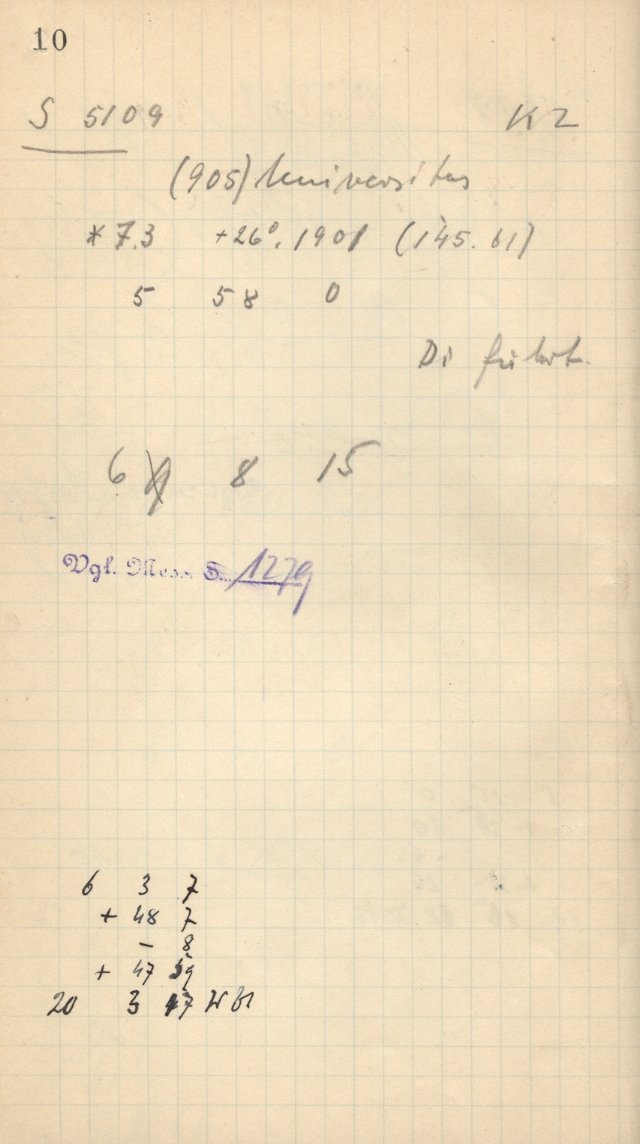 10
S 5109 KZ
(905) Universitas
* 7.3 +26°. 1901 (145. 61)
5 58 0
Di führt
6 8 15
Vgl. Mess. S. 1279
6 3 7
+ 48 7
- 8
+ 47 59
20 3 17